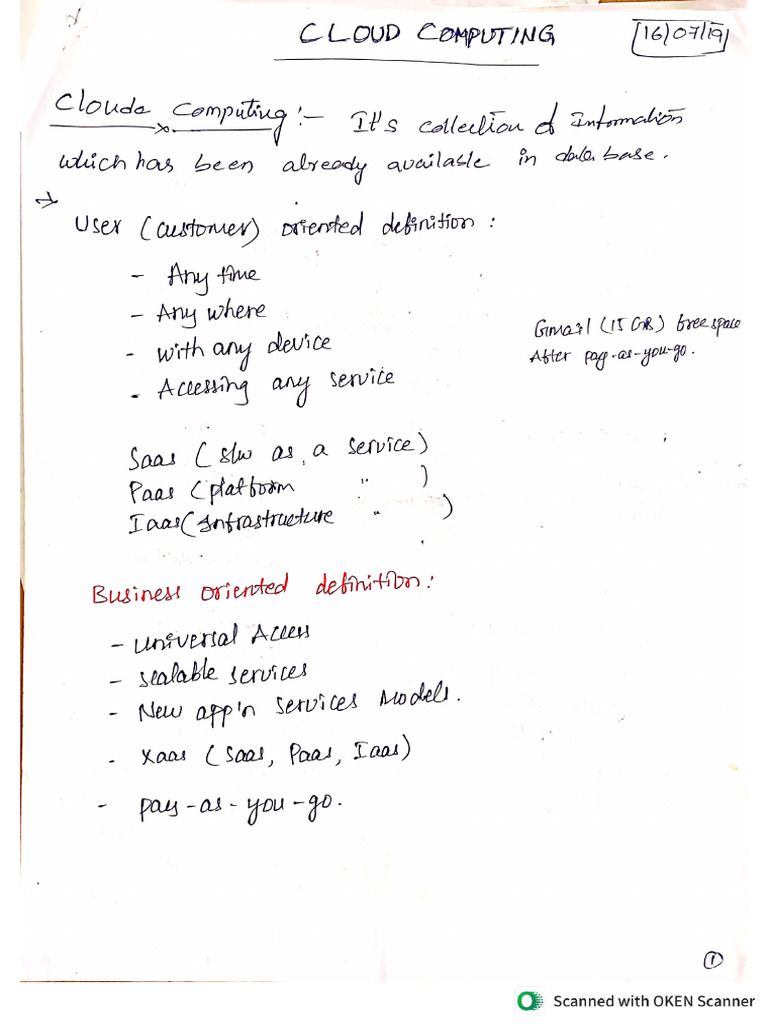 CLOUD COMPUTING
16/07/19
Clouds Computing :- It's collection of Information
which has been already available in data base.
→
User (customer) oriented definition :
- Any time
- Any where
- With any device
- Accessing any service
Gmail (15 GB) free space
After pay-as-you-go.
Saas ( s/w as a service)
Paas (platform " )
Iaas (Infrastructure " )
Business oriented definition :
- Universal Access
- Scalable services
- New app'n services Models.
- Xaas (Saas, Paas, Iaas)
- pay-as-you-go.
1
Scanned with OKEN Scanner